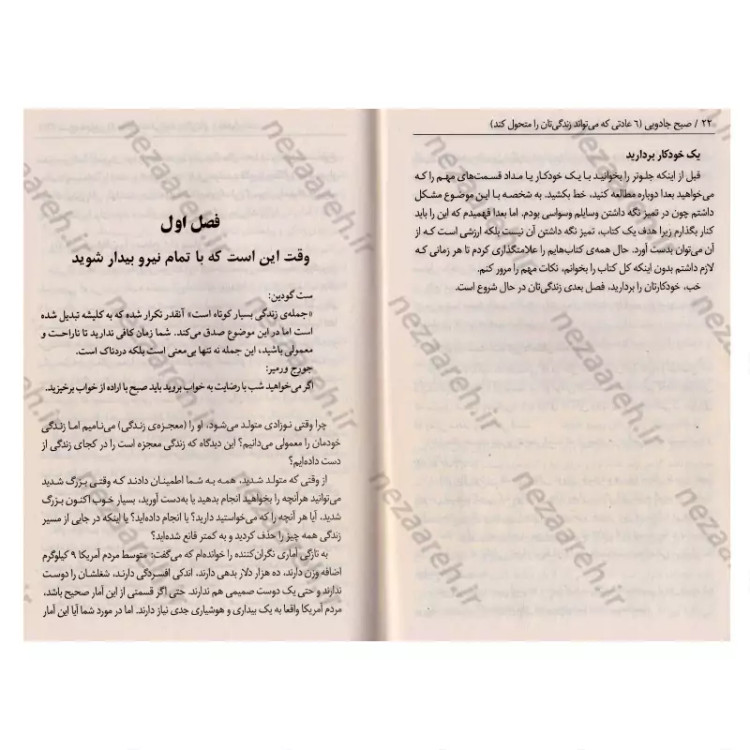 ۲۲ / صبح جادویی (۶ عادتی که می‌تواند زندگی‌تان را متحول کند)
یک خودکار بردارید
قبل از اینکه جلوتر را بخوانید با یک خودکار یا مداد قسمت‌های مهم را که
می‌خواهید بعدا دوباره مطالعه کنید، خط بکشید. به شخصه با این موضوع مشکل
داشتم چون در تمیز نگه داشتن وسایلم وسواسی بودم. اما بعدا فهمیدم که این را باید
کنار بگذارم زیرا هدف یک کتاب، تمیز نگه داشتن آن نیست بلکه ارزشی است که از
آن می‌توان بدست آورد. حال همه‌ی کتاب‌هایم را علامتگذاری کردم تا هر زمانی که
لازم داشتم بدون اینکه کل کتاب را بخوانم، نکات مهم را مرور کنم.
خب، خودکارتان را بردارید، فصل بعدی زندگی‌تان در حال شروع است.
فصل اول
وقت این است که با تمام نیرو بیدار شوید
ست گودین:
«جمله‌ی زندگی بسیار کوتاه است» آنقدر تکرار شده که به کلیشه تبدیل شده
است اما در این موضوع صدق می‌کند. شما زمان کافی ندارید تا ناراحت و
معمولی باشید، این جمله نه تنها بی‌معنی است بلکه دردناک است.
جورج ورمیر:
اگر می‌خواهید شب با رضایت به خواب بروید باید صبح با اراده از خواب برخیزید.
چرا وقتی نوزادی متولد می‌شود، او را (معجزه‌ی زندگی) می‌نامیم اما زندگی
خودمان را معمولی می‌دانیم؟ این دیدگاه که زندگی معجزه است را در کجای زندگی از
دست داده‌ایم؟
از وقتی که متولد شدید، همه به شما اطمینان دادند که وقتی بزرگ شدید
می‌توانید هرآنچه را بخواهید انجام بدهید یا به‌دست آورید، بسیار خوب اکنون بزرگ
شدید، آیا هر آنچه را که می‌خواستید دارید؟ یا انجام داده‌اید؟ یا اینکه در جایی از مسیر
زندگی همه چیز را حذف کردید و به کمتر قانع شده‌اید؟
به تازگی آماری نگران‌کننده را خوانده‌ام که می‌گفت: متوسط مردم آمریکا ۹ کیلوگرم
اضافه وزن دارند، ده هزار دلار بدهی دارند، اندکی افسردگی دارند، شغلشان را دوست
ندارند و حتی یک دوست صمیمی هم ندارند. حتی اگر قسمتی از این آمار صحیح باشد،
مردم آمریکا واقعا به یک بیداری و هوشیاری جدی نیاز دارند. اما در مورد شما آیا این آمار
nezaareh.ir
nezaareh.ir
nezaareh.ir
nezaareh.ir
nezaareh.ir
nezaareh.ir
nezaareh.ir
nezaareh.ir